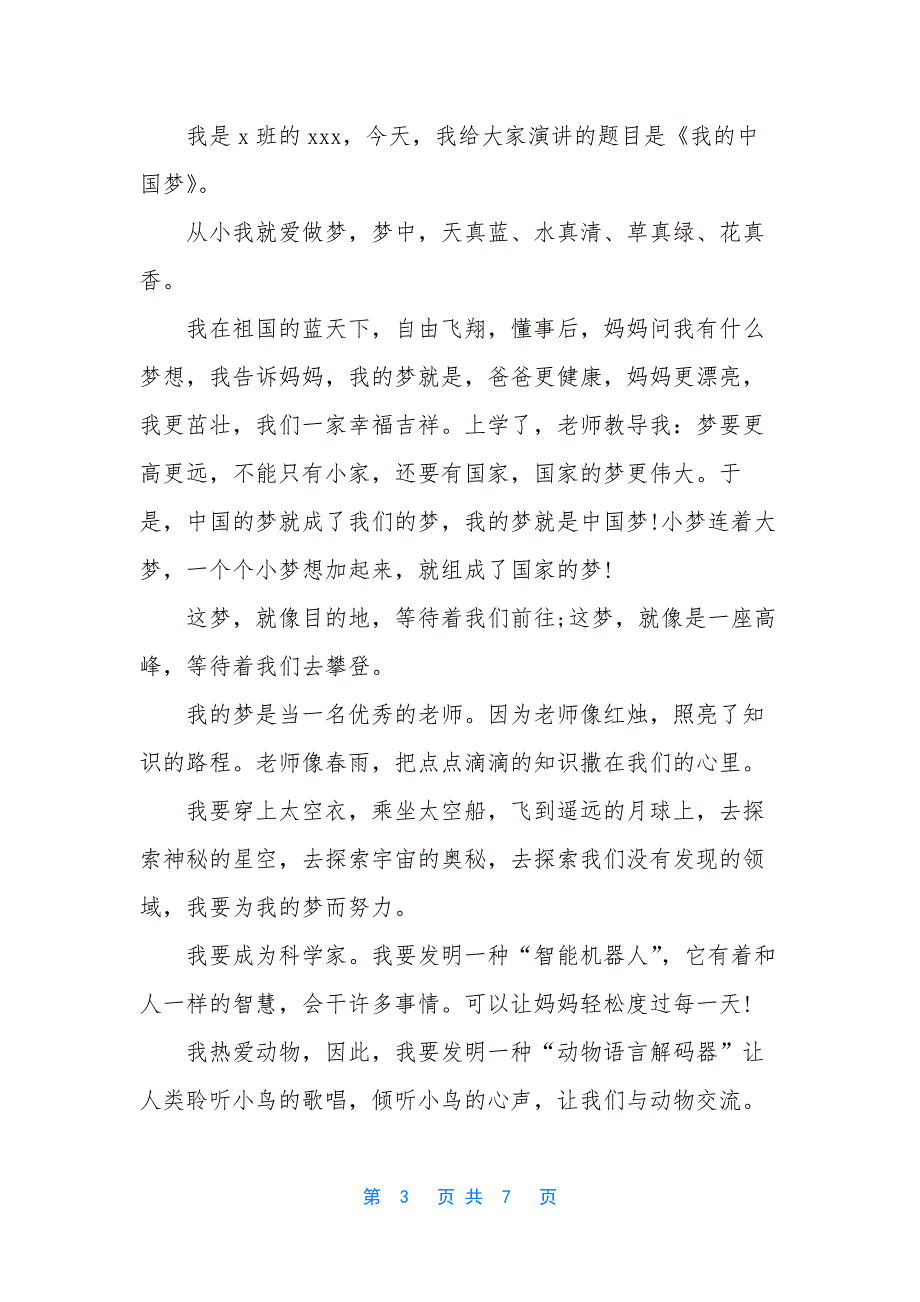 我是 x 班的 xxx，今天，我给大家演讲的题目是《我的中
国梦》。
从小我就爱做梦，梦中，天真蓝、水真清、草真绿、花真
香。
我在祖国的蓝天下，自由飞翔，懂事后，妈妈问我有什么
梦想，我告诉妈妈，我的梦就是，爸爸更健康，妈妈更漂亮，
我更茁壮，我们一家幸福吉祥。上学了，老师教导我：梦要更
高更远，不能只有小家，还要有国家，国家的梦更伟大。于
是，中国的梦就成了我们的梦，我的梦就是中国梦!小梦连着大
梦，一个个小梦想加起来，就组成了国家的梦!
这梦，就像目的地，等待着我们前往;这梦，就像是一座高
峰，等待着我们去攀登。
我的梦是当一名优秀的老师。因为老师像红烛，照亮了知
识的路程。老师像春雨，把点点滴滴的知识撒在我们的心里。
我要穿上太空衣，乘坐太空船，飞到遥远的月球上，去探
索神秘的星空，去探索宇宙的奥秘，去探索我们没有发现的领
域，我要为我的梦而努力。
我要成为科学家。我要发明一种“智能机器人”，它有着和
人一样的智慧，会干许多事情。可以让妈妈轻松度过每一天!
我热爱动物，因此，我要发明一种“动物语言解码器”让
人类聆听小鸟的歌唱，倾听小鸟的心声，让我们与动物交流。
第 3 页 共 7 页